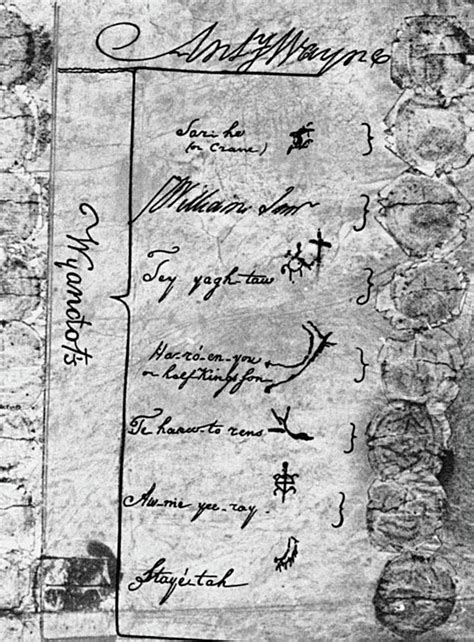 Anty Wayne
Wyandots
Tarihe
(or Crane)
William Sur
Tey yagh-taw
Ha-ró-en-you
or half Kings son
Te haaw-to rens
Aw-me yee-ray.
Stayétah